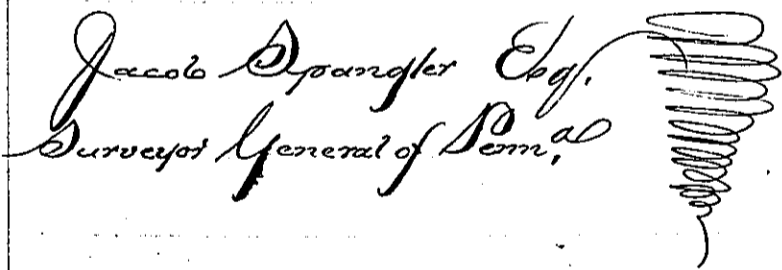 Jacob Spangler Esq.
Surveyor General of Penn.a